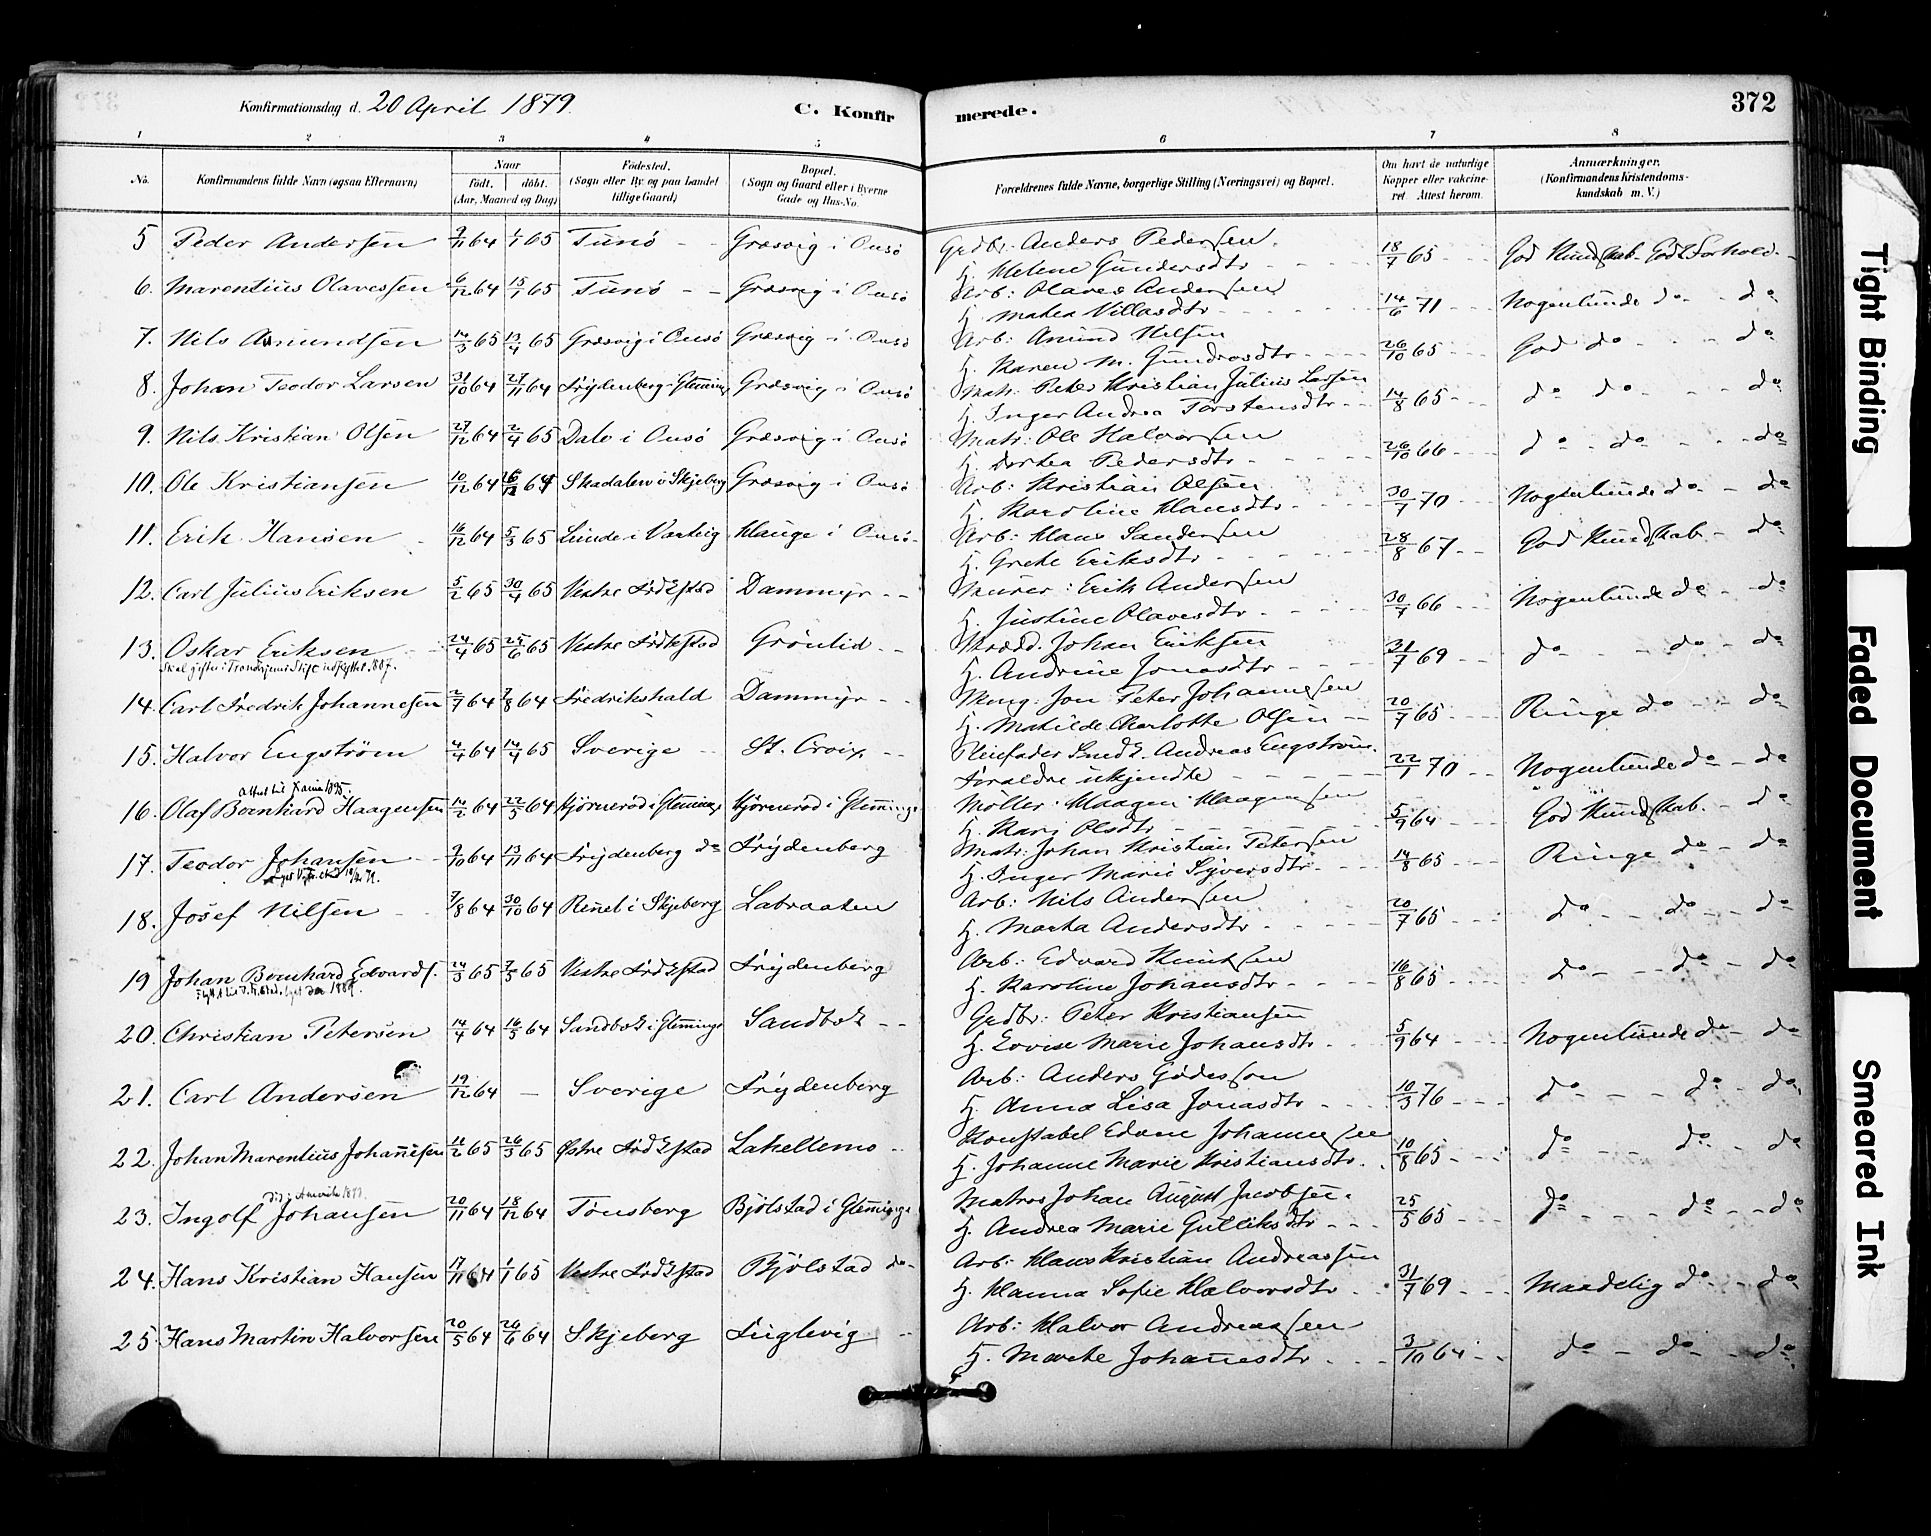 Konfirmationsdag d. 20 April 1879.
C. Konfirmerede.
372
1 2 3 4 5 6 7 8
No.
Konfirmandens fulde Navn (ogsaa Efternavn)
Naar
født. døbt.
(Aar, Maaned og Dag)
Fødested.
(Sogn eller By og paa Landet
tillige Gaard)
Bopæl.
(Sogn og Gaard eller i Byerne
Gade og Hus-No.
Forældrenes fulde Navne, borgerlige Stilling (Næringsvei) og Bopæl.
Om havt de naturlige
Kopper eller vaccine-
ret Attest herom.
Anmærkninger.
(Konfirmandens Kristendoms-
kundskab m. V.)
5 Peder Andersen 9/11 64 1/1 65 Tunø Græsvig i Onsø Grdbr: Anders Pedersen.
H. Helene Gundersdtr 18/7 65 God Kundskab God Forhold
6. Marentius Olavessen 6/12 64 15/1 65 Tunø Græsvig i Onsø Arb: Olaves Andersen
H. Mathea Nillasdtr 14/6 71 Nogenlunde do do
7. Nils Amundsen 14/3 65 13/4 65 Græsvig i Onsø Græsvig i Onsø Arb: Amund Nilsen
H. Karen M. Gundrosdtr 26/10 65 God do do
8. Johan Teodor Larsen 31/10 64 27/11 64 Frydenberg i Glemminge Græsvig i Onsø Matr: Peter Kristian Julius Larsen
H. Inger Andrea Torstensdtr 14/8 65 do do do
9. Nils Kristian Olsen 27/12 64 2/4 65 Dale i Onsø Græsvig i Onsø Matr: Ole Halvorsen
H. Dorthea Pedersdtr 26/10 66 do do do
10. Ole Kristiansen 10/12 64 26/12 64 Skadalen i Skjeberg Græsvig i Onsø Arb: Kristian Olsen
H. Karoline Hansdtr 30/7 70 Nogenlunde do do
11. Erik Hansen 16/12 64 5/3 65 Lunde i Varteig Hauge i Onsø Arb: Hans Sandersen
H. Grethe Eriksdtr 28/8 67 God Kundskab do
12. Carl Julius Eriksen 5/2 65 30/4 65 Vestre Frdkstad Dammyr Murer: Erik Andersen
H. Justine Olavesdtr 30/7 66 Nogenlunde do do
13. Oskar Eriksen 24/4 65 25/6 65 Vestre Frdkstad Grønlid Skrædd. Johan Eriksen
H. Andrine Jonasdtr 31/7 69 do do do
14. Carl Fredrik Johannesen 2/7 64 7/8 64 Fredrikshald Dammyr Jon Peter Johannesen
H. Mathilde Charlotte Olsen 20/7 65 Ringe do do
15. Halvor Engstrøm 4/4 64 14/4 65 Sverige St. Croix Pleiefader Smed Andreas Engstrøm
Foræeldre ukjendte 22/1 70 Nogenlunde do do
16. Olaf Bernhard Haagensen 14/2 64 22/5 64 Kjørnerød i Glemminge Kjørnerød i Glemminge Møller: Haagen Haagensen
H. Kari Olsdtr 5/9 64 God Kundskab. do
17. Teodor Johansen 9/10 64 13/11 64 Frydenberg do Frydenberg Matr: Johan Kristian Petersen
H. Inger Marie Syversdtr 14/8 65 Ringe do do
18. Josef Nilsen 7/8 64 30/10 64 i Skjeberg Labraaten Arb: Nils Andersen
H. Martha Andersdtr 20/7 65 do do do
19 Johan Bernhard Edvards. 24/3 65 7/5 65 Vestre Frdkstad Frydenberg Arb: Edvard Knutsen
H. Karoline Johansdtr 16/8 65 do do do
20. Christian Petersen 14/4 64 16/5 64 Sandbæk i Glemminge Sandbæk Grdbr: Peter Kristiansen
H. Lovise Marie Johansdtr 5/9 64 Nogenlunde do do
21. Carl Andersen 19/12 64 — Sverige Frydenberg Arb: Anders Gødesson
H. Anna Lisa Jonasdtr 10/3 76 do do do
22. Johan Marentius Johannesen 11/2 65 26/3 65 Østre Frdkstad Lahellemo Konstabel Johannessen
H. Johanne Marie Kristiansdtr. 10/8 65 do do do
23. Ingolf Johansen 20/11 64 18/12 64 Tønsberg Bjølstad i Glemminge Matros Johan August Jacobsen
H. Andrea Marie Gulliksdtr 25/5 65 do do do
24. Hans Kristian Hansen 17/11 64 1/1 65 Vestre Frdkstad Bjølstad do Arb: Hans Kristian Andreassen
H. Hanna Sofie Halvorsdtr 31/7 69 Maadelig do do
25. Hans Martin Halvorsen 20/5 64 26/6 64 Skjeberg Fuglevig Arb: Halvor Andreassen
H. Marthe Johannesdtr 3/10 64 do do do
Tight Binding
Faded Document
Smeared Ink